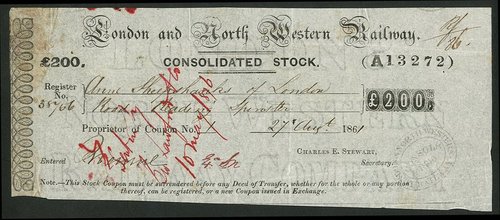 London and North Western Railway.
£200. CONSOLIDATED STOCK. (A13272)
Register No. Anne of London
Road Reading Spinster £200.
Proprietor of Coupon No. 1 27 Augt. 1861
CHARLES E. STEWART,
Entered Secretary.
Note.—This Stock Coupon must be surrendered before any Deed of Transfer, whether for the whole or any portion
thereof, can be registered, or a new Coupon issued in Exchange.
10 May 1876